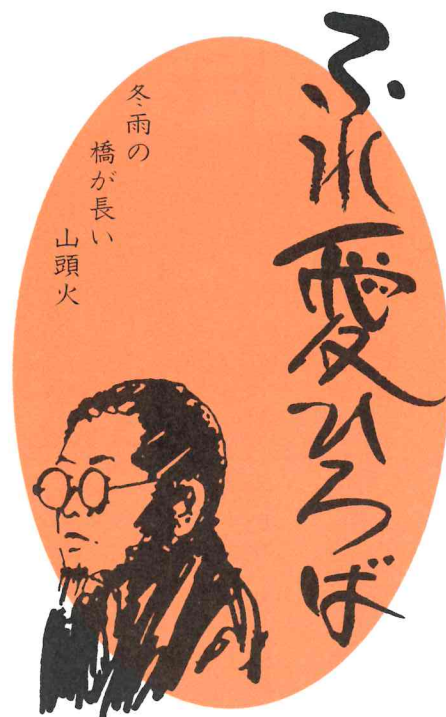 ふれ愛ひろば
冬雨の
橋が長い
山頭火